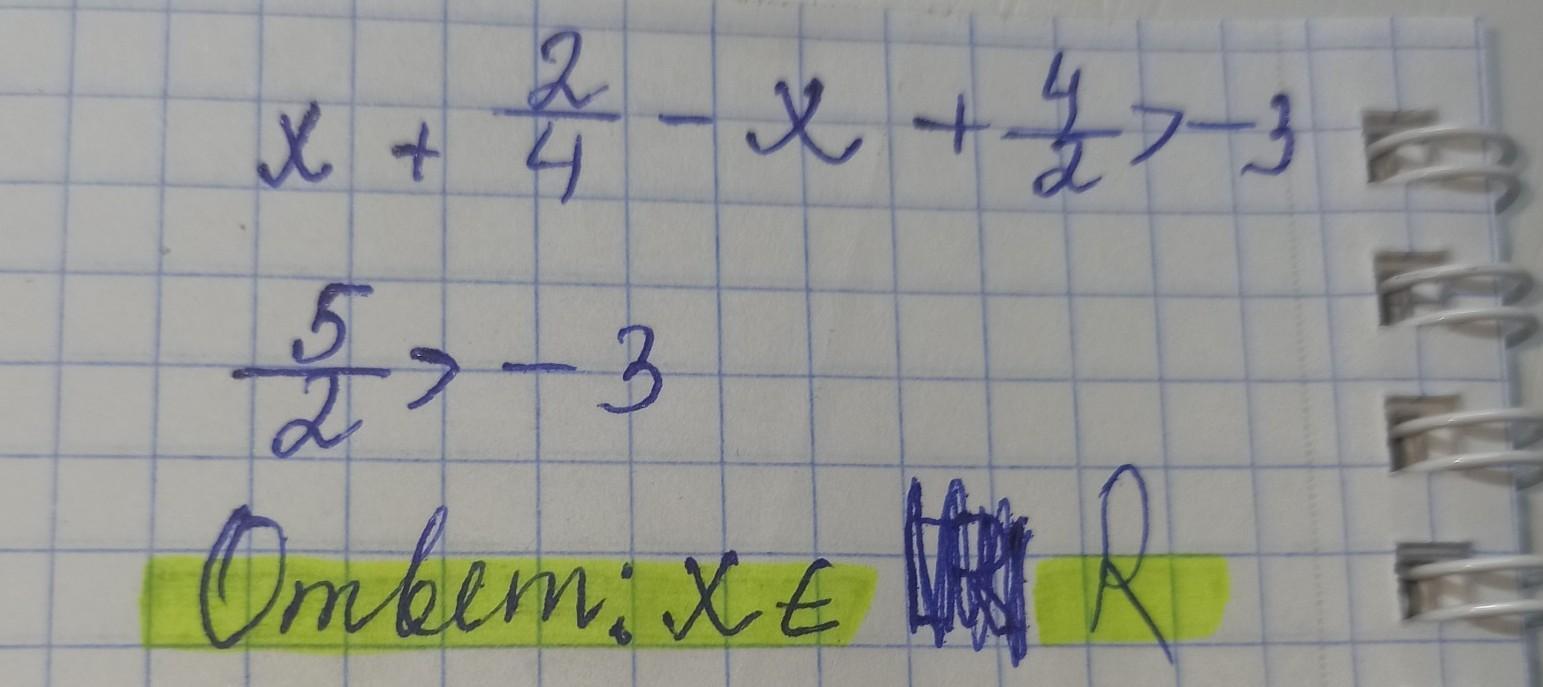 x + 2/4 - x + 4/2 > -3
5/2 > -3
Ответ: x ∈ R